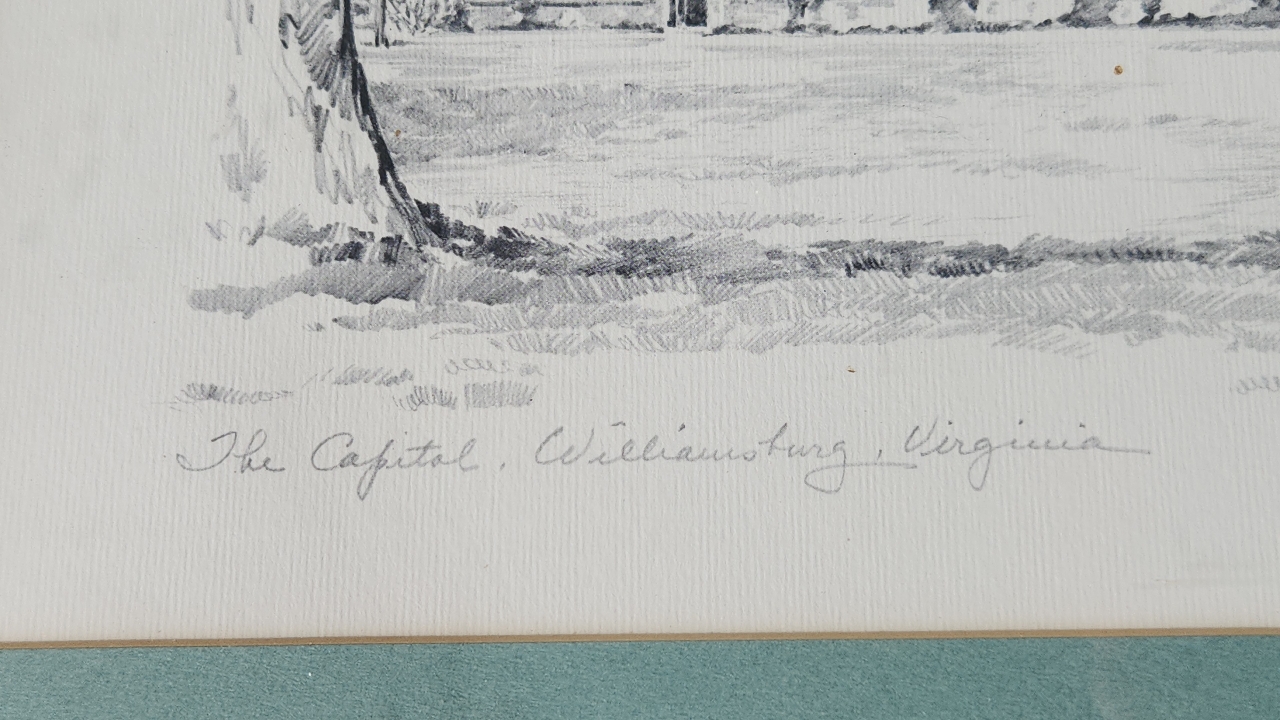 The Capitol, Williamsburg, Virginia